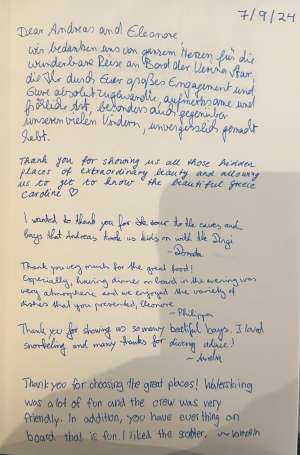 7/9/24
Dear Andreas and Eleonore
wir bedanken uns von ganzem Herzen für die
wunderbare Reise an Bord der Verina Star,
die Ihr durch Euer großes Engagement und
Eure absolut zugewandte, aufmerksame und
fröhliche Art, besonders auch gegenüber
unseren vielen Kindern, unvergesslich gemacht
habt.
Thank you for showing us all those hidden
places of extraordinary beauty and allowing
us to get to know the beautiful Greece
Caroline ♡
I wanted to thank you for the tour to the caves and
bays that Andreas took us kids on with the Dingi
~Donata
Thank you very much for the great food!
Especially, having dinner on board in the evening was
very atmospheric and we enjoyed the variety of
dishes that you presented, Eleonore
~Philippa
Thank you for showing us so many beatiful bays. I loved
snorkeling and many thanks for diving advice!
~ Amelie
Thank you for choosing the great places! Waterskiing
was a lot of fun and the crew was very
friendly. In addition, you have everthing on
board that is fun. I liked the scooter. ~Valentin